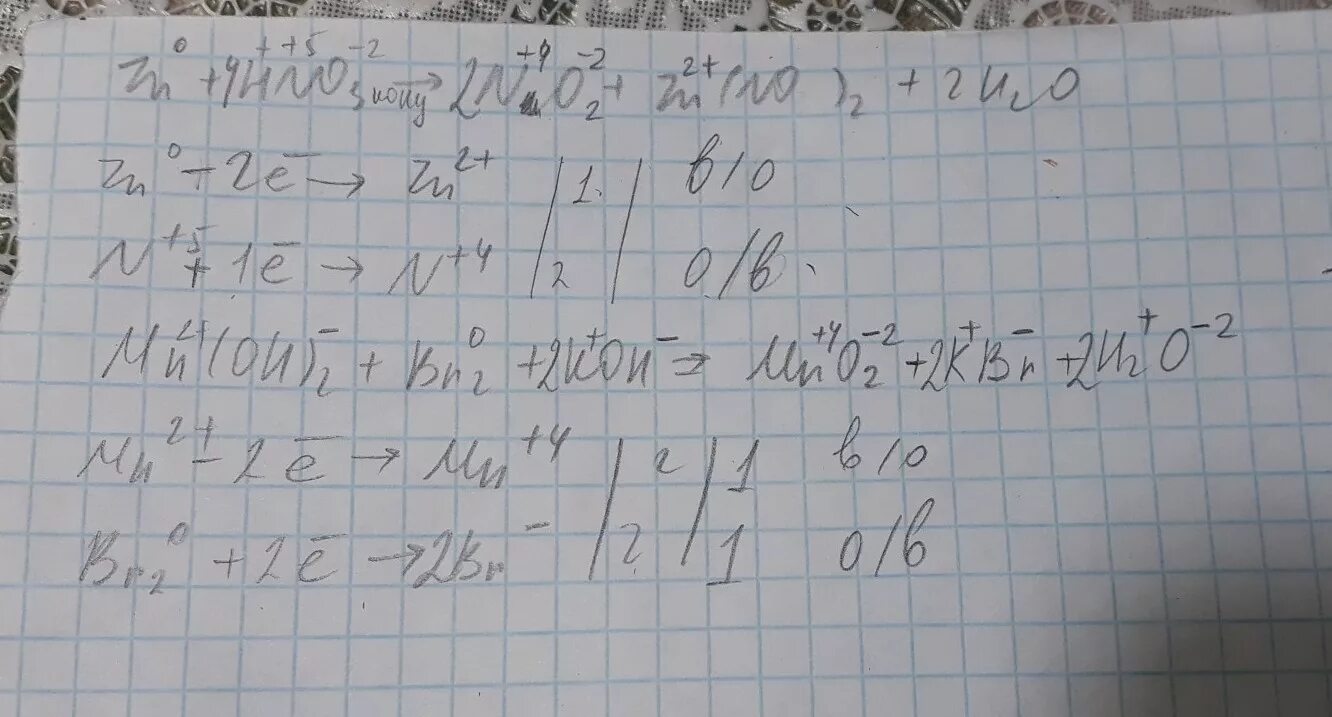 Zn⁰ + 4H⁺N⁺⁵O₃⁻² конц → 2N⁺⁴O₂⁻² + Zn²⁺(NO )₂ + 2H₂O
Zn⁰ - 2e̅ → Zn²⁺ | 1. | в/о
N⁺⁵ + 1e̅ → N⁺⁴ | 2 | о/в
Mn²⁺(OH)₂⁻ + Br₂⁰ + 2K⁺OH⁻ → Mn⁺⁴O₂⁻² + 2K⁺Br⁻ + 2H₂⁺O⁻²
Mn²⁺ - 2e̅ → Mn⁺⁴ | 2 | 1 в/о
Br₂⁰ + 2e̅ → 2Br⁻ | 2 | 1 о/в